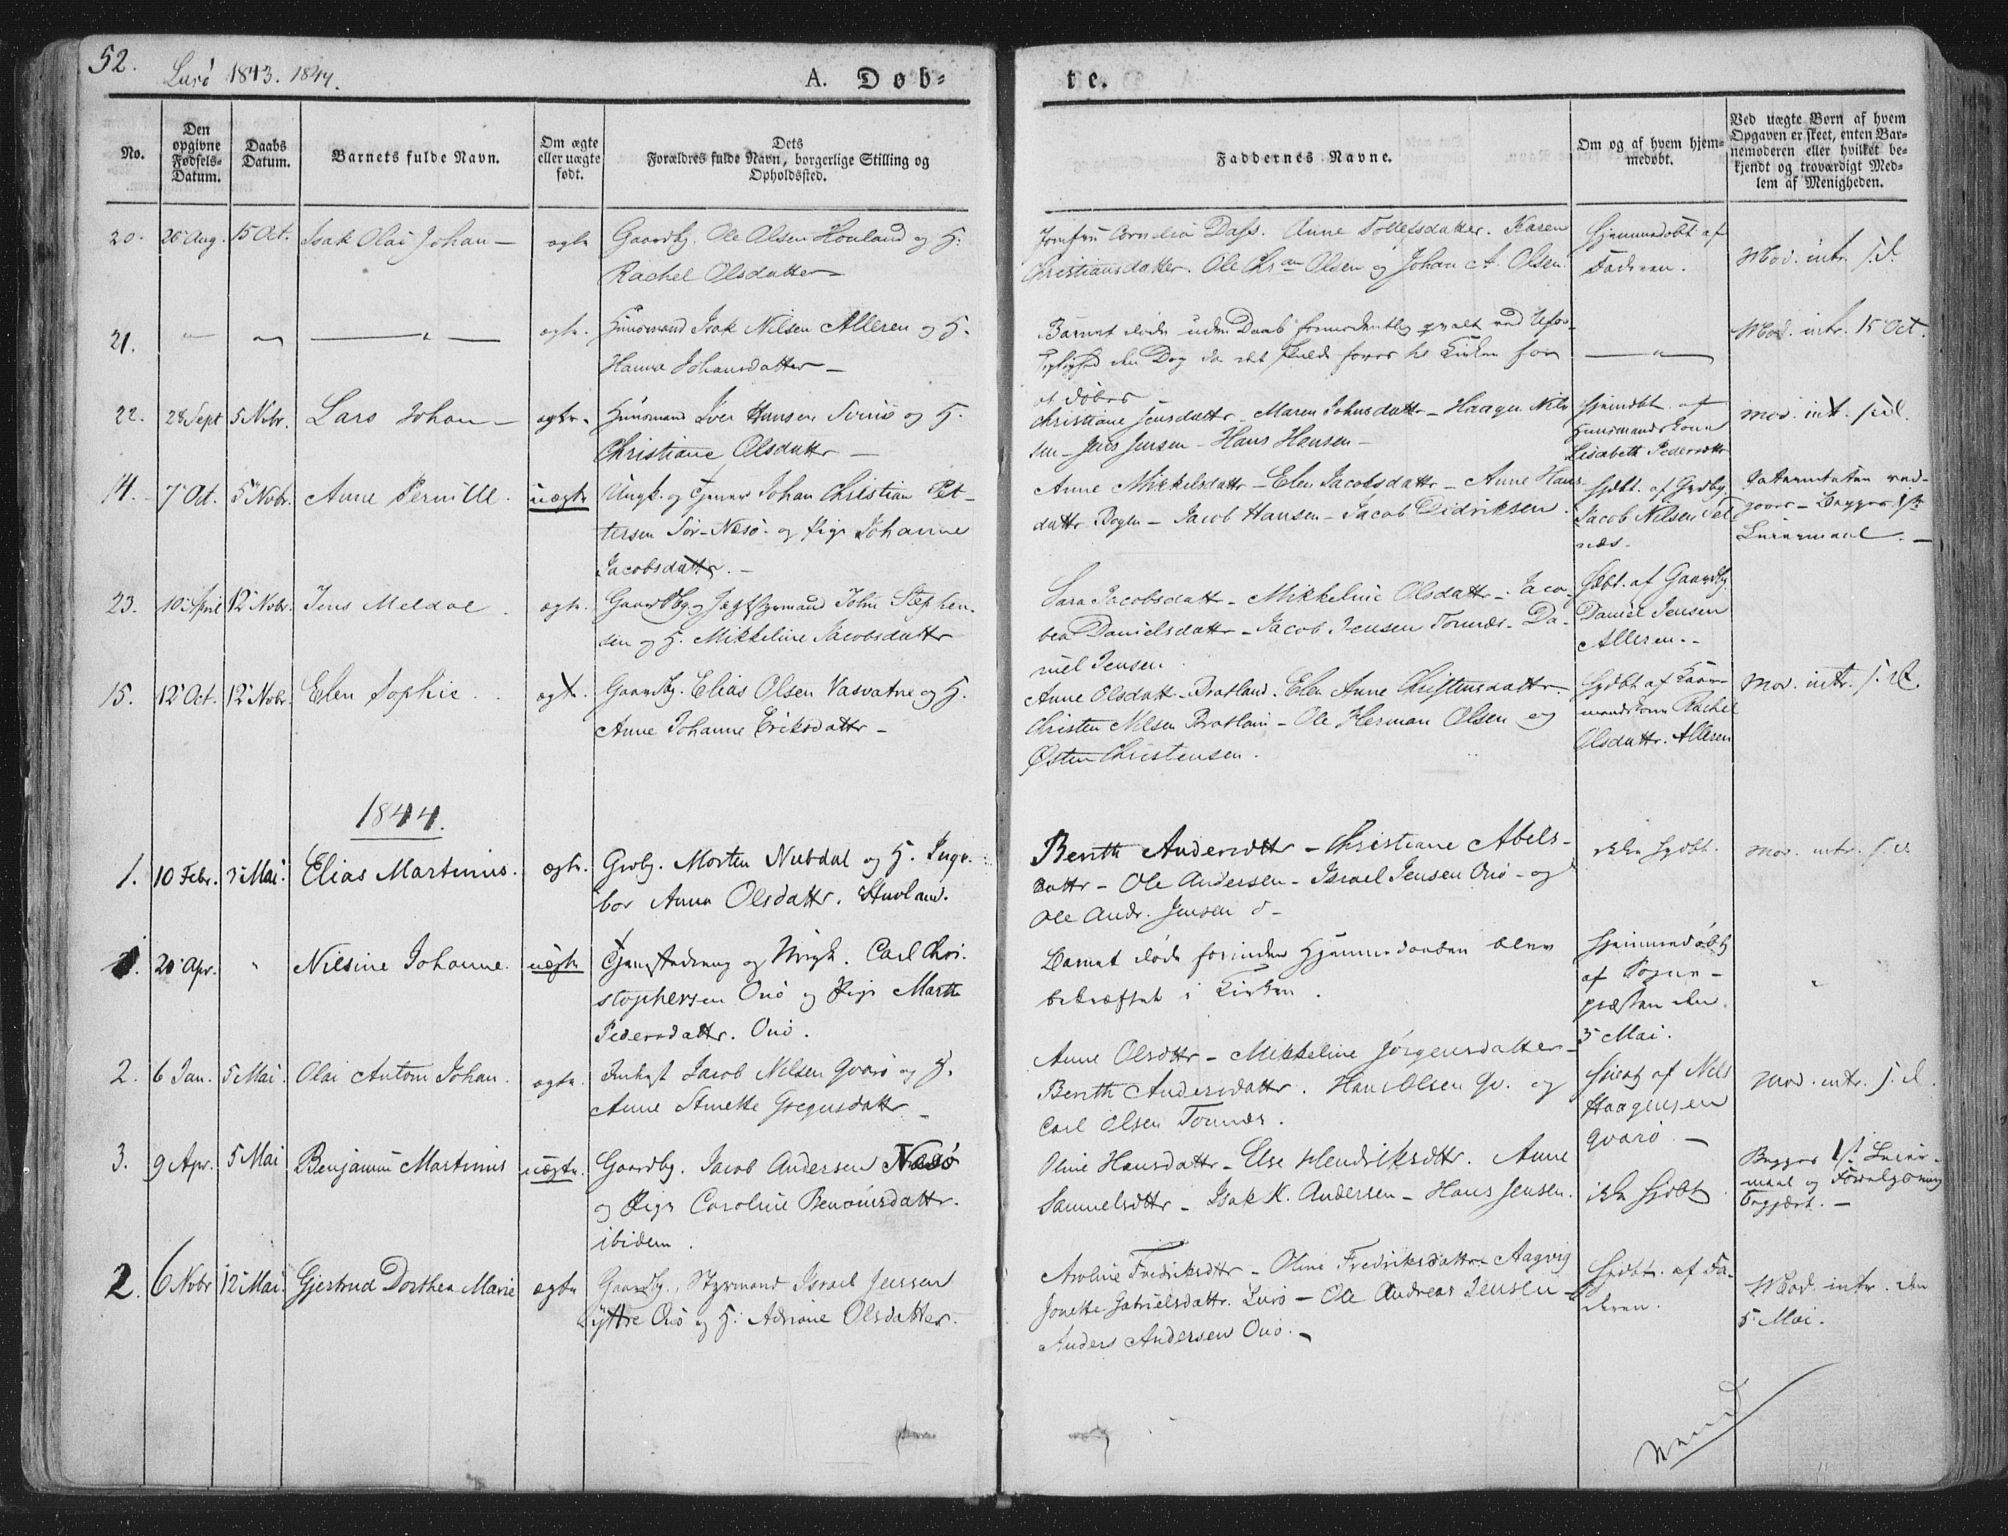 52.
Lurø 1843. 1844.
A. Døb-
te.
No.
Den opgivne Fødsels-Datum.
Daabs Datum.
Barnets fulde Navn.
Om ægte eller uægte født.
Dets
Forældres fulde Navn, borgerlige Stilling og
Opholdssted.
Faddernes Navne.
Om og af hvem hjem-
medøbt.
Ved uægte Børn af hvem
Opgaven er skeet, enten Bar-
nemoderen eller hvilket be-
kjendt og troværdigt Med-
lem af Menigheden.
20. 26 Aug. 15 Oct. Isak Olai Johan — ægte Gaardbg. Ole Olsen Hovland og H.
Rachel Olsdatter —
Jomfru Cornelia Dass. Anne Tollefsdatter. Karen
Christiansdatter. Ole Chr. Olsen og Johan A. Olsen.
Hjemmedøbt af
Faderen.
Mod. intr. s. d.
21. — — — ægte. Huusmand Isak Nilsen Alleren og H.
Hanna Johansdatter —
Barnet døde uden Daab formodentlig qvalt ved Ufor-
sigtighed den Dag da det skulde føres til Kirken for
at døbes
Mod. intr. 15 Oct.
22. 28 Sept 5 Nobr. Lars Johan — ægte. Huusmand Iver Hansen og H.
Christiane Olsdattr —
Christiane Jensdattr — Maren Johnsdattr — Haagen Nil-
sen — Jens Jensen — Hans Hansen —
Hjemdbt. af
Huusmandskone
Lisabeth Pedersdttr
Mod. int. s. d.
14. 7 Oct. 5 Nobr. Anne Pernille. uægte Ungk. og Tjener Johan Christian Pet-
tersen Sør-Næsø. og Pige Johanne
Jacobsdattr. —
Anne Mikkelsdattr — Elen Jacobsdattr — Anne Hans-
dattr Bogen — Jacob Hansen — Jacob Didriksen.
Hjdbt. af Grdbg.
Jacob Nilsen Sel-
næs.
Begges 1ste
Leiermaal. —
23. 10 April 12 Nobr. Jens Meldal. ægte. Gaardbg. og John Stephen-
sen og H. Mikkeline Jacobsdattr
Sara Jacobsdattr — Mikkeline Olsdattr — Jaco-
bea Danielsdattr — Jacob Jensen Tonnes. Da-
niel Jensen.
Hjdbt. af Gaardbg.
Daniel Jensen
Alleren. —
15. 12 Oct. 12 Nobr. Elen Sophie. ægte. Gaardbg. Elias Olsen Vasvatne og H.
Anne Johanne Eriksdattr —
Anne Olsdattr Bratland. Elen Anne Christensdattr.
Christen Nilsen Bratland — Ole Herman Olsen og
Østen Christensen.
Hjdbt. af
Rachel
Olsdattr. Alleren
Mod. intr. s. d.
1844.
1. 10 Febr. 5 Mai. Elias Martinus. ægte. Grdbg. Morten Nubdal og H. Inge-
bor Anna Olsdattr. Huvland.
Berith Andersdttr — Christiane Abels-
dattr — Ole Andersen — Israel Jensen Onø — og
Ole Andr. Jensen
ikke hjdbt.
Mod. intr. s. d.
1. 20 Apr. " Nilsine Johanne. uægte Tjenestedreng og Ungk. Carl Chri-
stophersen Onø og Pige Marth
Pedersdattr. Onø.
Barnet døde forinden Hjemmedaaben blev
bekræftet i Kirken.
Hjemmedøbt
af Sogne-
præsten den
5 Mai.
"
2. 6 Jan. 5 Mai. Olai Antoni Johan. ægte. Jacob Nilsen Qvarø og H.
Anne Gregusdattr —
Anne Olsdttr — Mikkeline Jørgensdatter —
Berith Andersdattr. Hans Olsen Qv. og
Carl Olsen Tonnes.
af Nils
Haagensen
Qvarø —
Mod. intr. s. d.
3. 9 Apr. 5 Mai Benjamin Martinus uægte. Gaardbg. Jacob Andersen Næsø
og Pige Caroline Benonisdattr.
ibidem.
Oline Hansdattr — Else Hendriksdttr. Anne
Samuelsdttr — Isak K. Andersen — Hans Jensen.
ikke hjdbt.
Begges 1st Leier-
maal og
2. 6 Nobr 12 Mai. Gjertrud Dorthea Marie ægte Gaardbg. Styrmand Israel Jenssen
Yttre Onø og H. Adriane Olsdatter.
Aroline Fredriksdttr — Oline Fredriksdattr Aagvig
Jonette Gabrielsdattr. Lurø — Ole Andreas Jensen —
Anders Andersen Onø. —
Hjdbt. af Fa-
deren.
Mod. intr. den
5 Mai.